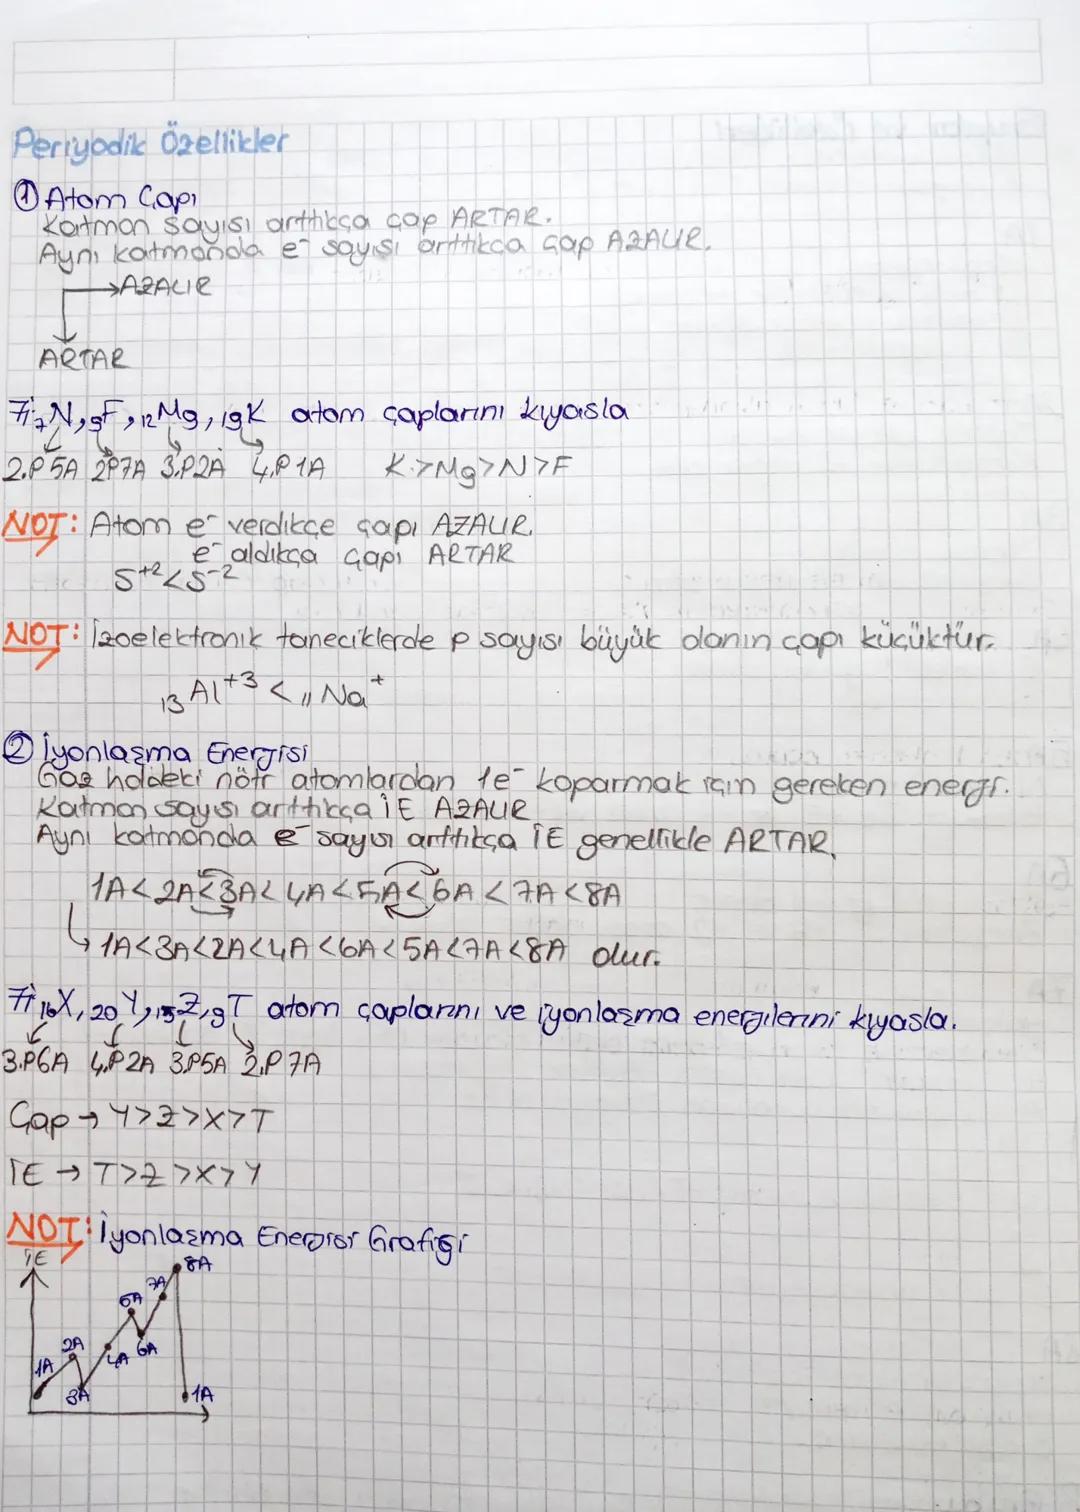 Periyodik Özellikler
① Atom Çapı
Katman sayısı arttıkça çap ARTAR.
Aynı katmanda e⁻ sayısı arttıkça çap AZALIR.
→AZALIR
ARTAR
₇N, ₉F, ₁₂Mg, ₁₉K atom çaplarını kıyasla
2.P 5A 2P7A 3.P2A 4.P 1A K>Mg>N>F
NOT: Atom e⁻ verdikçe çapı AZALIR.
e⁻ aldıkça çapı ARTAR
S⁺²<S⁻²
NOT: İzoelektronik taneciklerde p sayısı büyük olanın çapı küçüktür.
₁₃Al⁺³ < ₁₁Na⁺
② İyonlaşma Enerjisi
Gaz haldeki nötr atomlardan 1e⁻ koparmak için gereken enerji.
Katman sayısı arttıkça İE AZALIR
Aynı katmanda e⁻ sayısı arttıkça İE genellikle ARTAR.
1A<2A<3A<4A<5A<6A<7A<8A
↳ 1A<3A<2A<4A<6A<5A<7A<8A olur.
₁₆X, ₂₀Y, ₁₅Z, ₉T atom çaplarını ve iyonlaşma enerjilerini kıyasla.
3.P6A 4.P2A 3.P5A 2.P 7A
Çap → Y>Z>X>T
İE → T>Z>X>Y
NOT: İyonlaşma Enerjisi Grafiği
İE
8A
7A
2A
4A
6A
1A
3A
1A